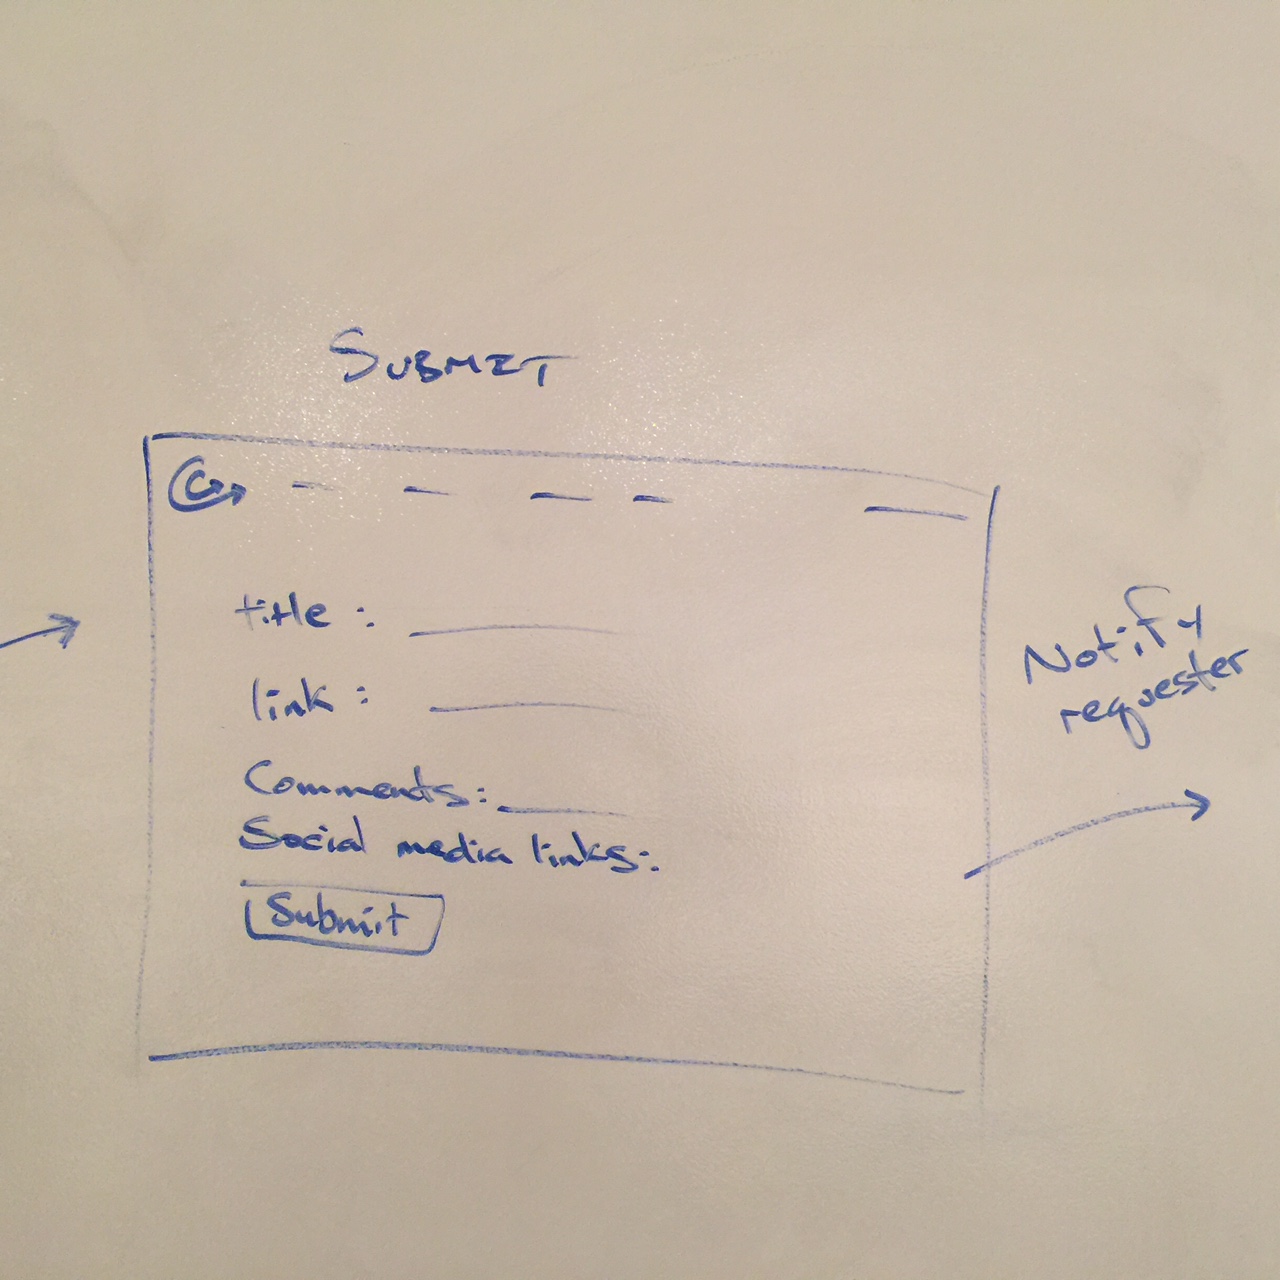 SUBMIT
title :
link :
Comments:
Social media links:
Submit
Notify
requester